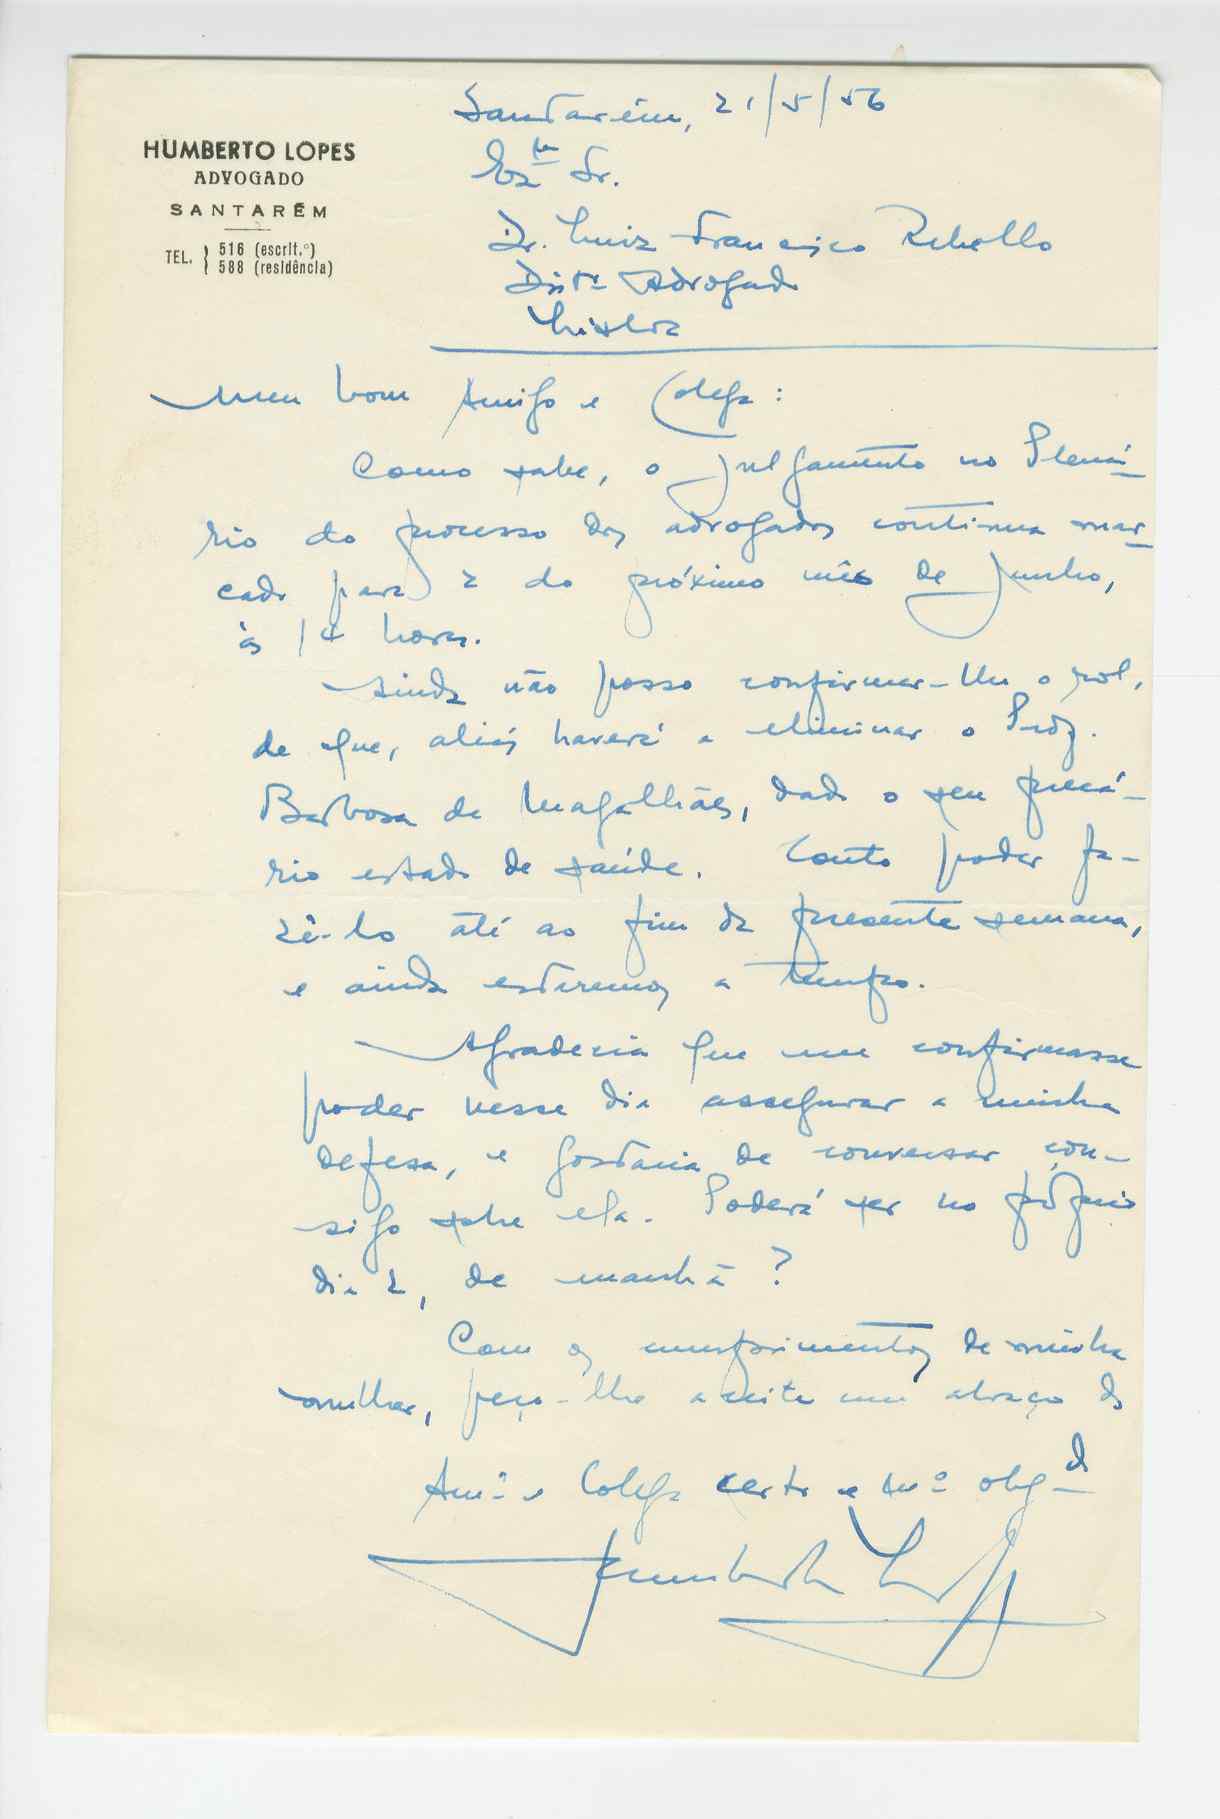 Santarém, 21/5/56
HUMBERTO LOPES
ADVOGADO
SANTARÉM
TEL. } 516 (escrit.º)
588 (residência)
Exmo Sr.
Dr. Luiz Francisco Rebello
Distº Advogado
Lisboa
Meu bom Amigo e Colega:
Como sabe, o julgamento no Plená-
rio do processo dos advogados continua mar-
cado para 2 do próximo mês de Junho,
às 14 horas.
Ainda não posso confirmar-lhe o rol,
de que, aliás haverá a eliminar o Prof.
Barbosa de Magalhães, dado o seu precá-
rio estado de saúde. Conto poder fa-
zê-lo até ao fim da presente semana,
e ainda estaremos a tempo.
Agradecia que me confirmasse
poder nesse dia assegurar a minha
defesa, e gostaria de conversar con-
sigo sobre ela. Poderá ser no próprio
dia 2, de manhã?
Com os cumprimentos de minha
mulher, peço-lhe aceite um abraço do
Amº e Colega certo e mº obgdo
Humberto Lopes